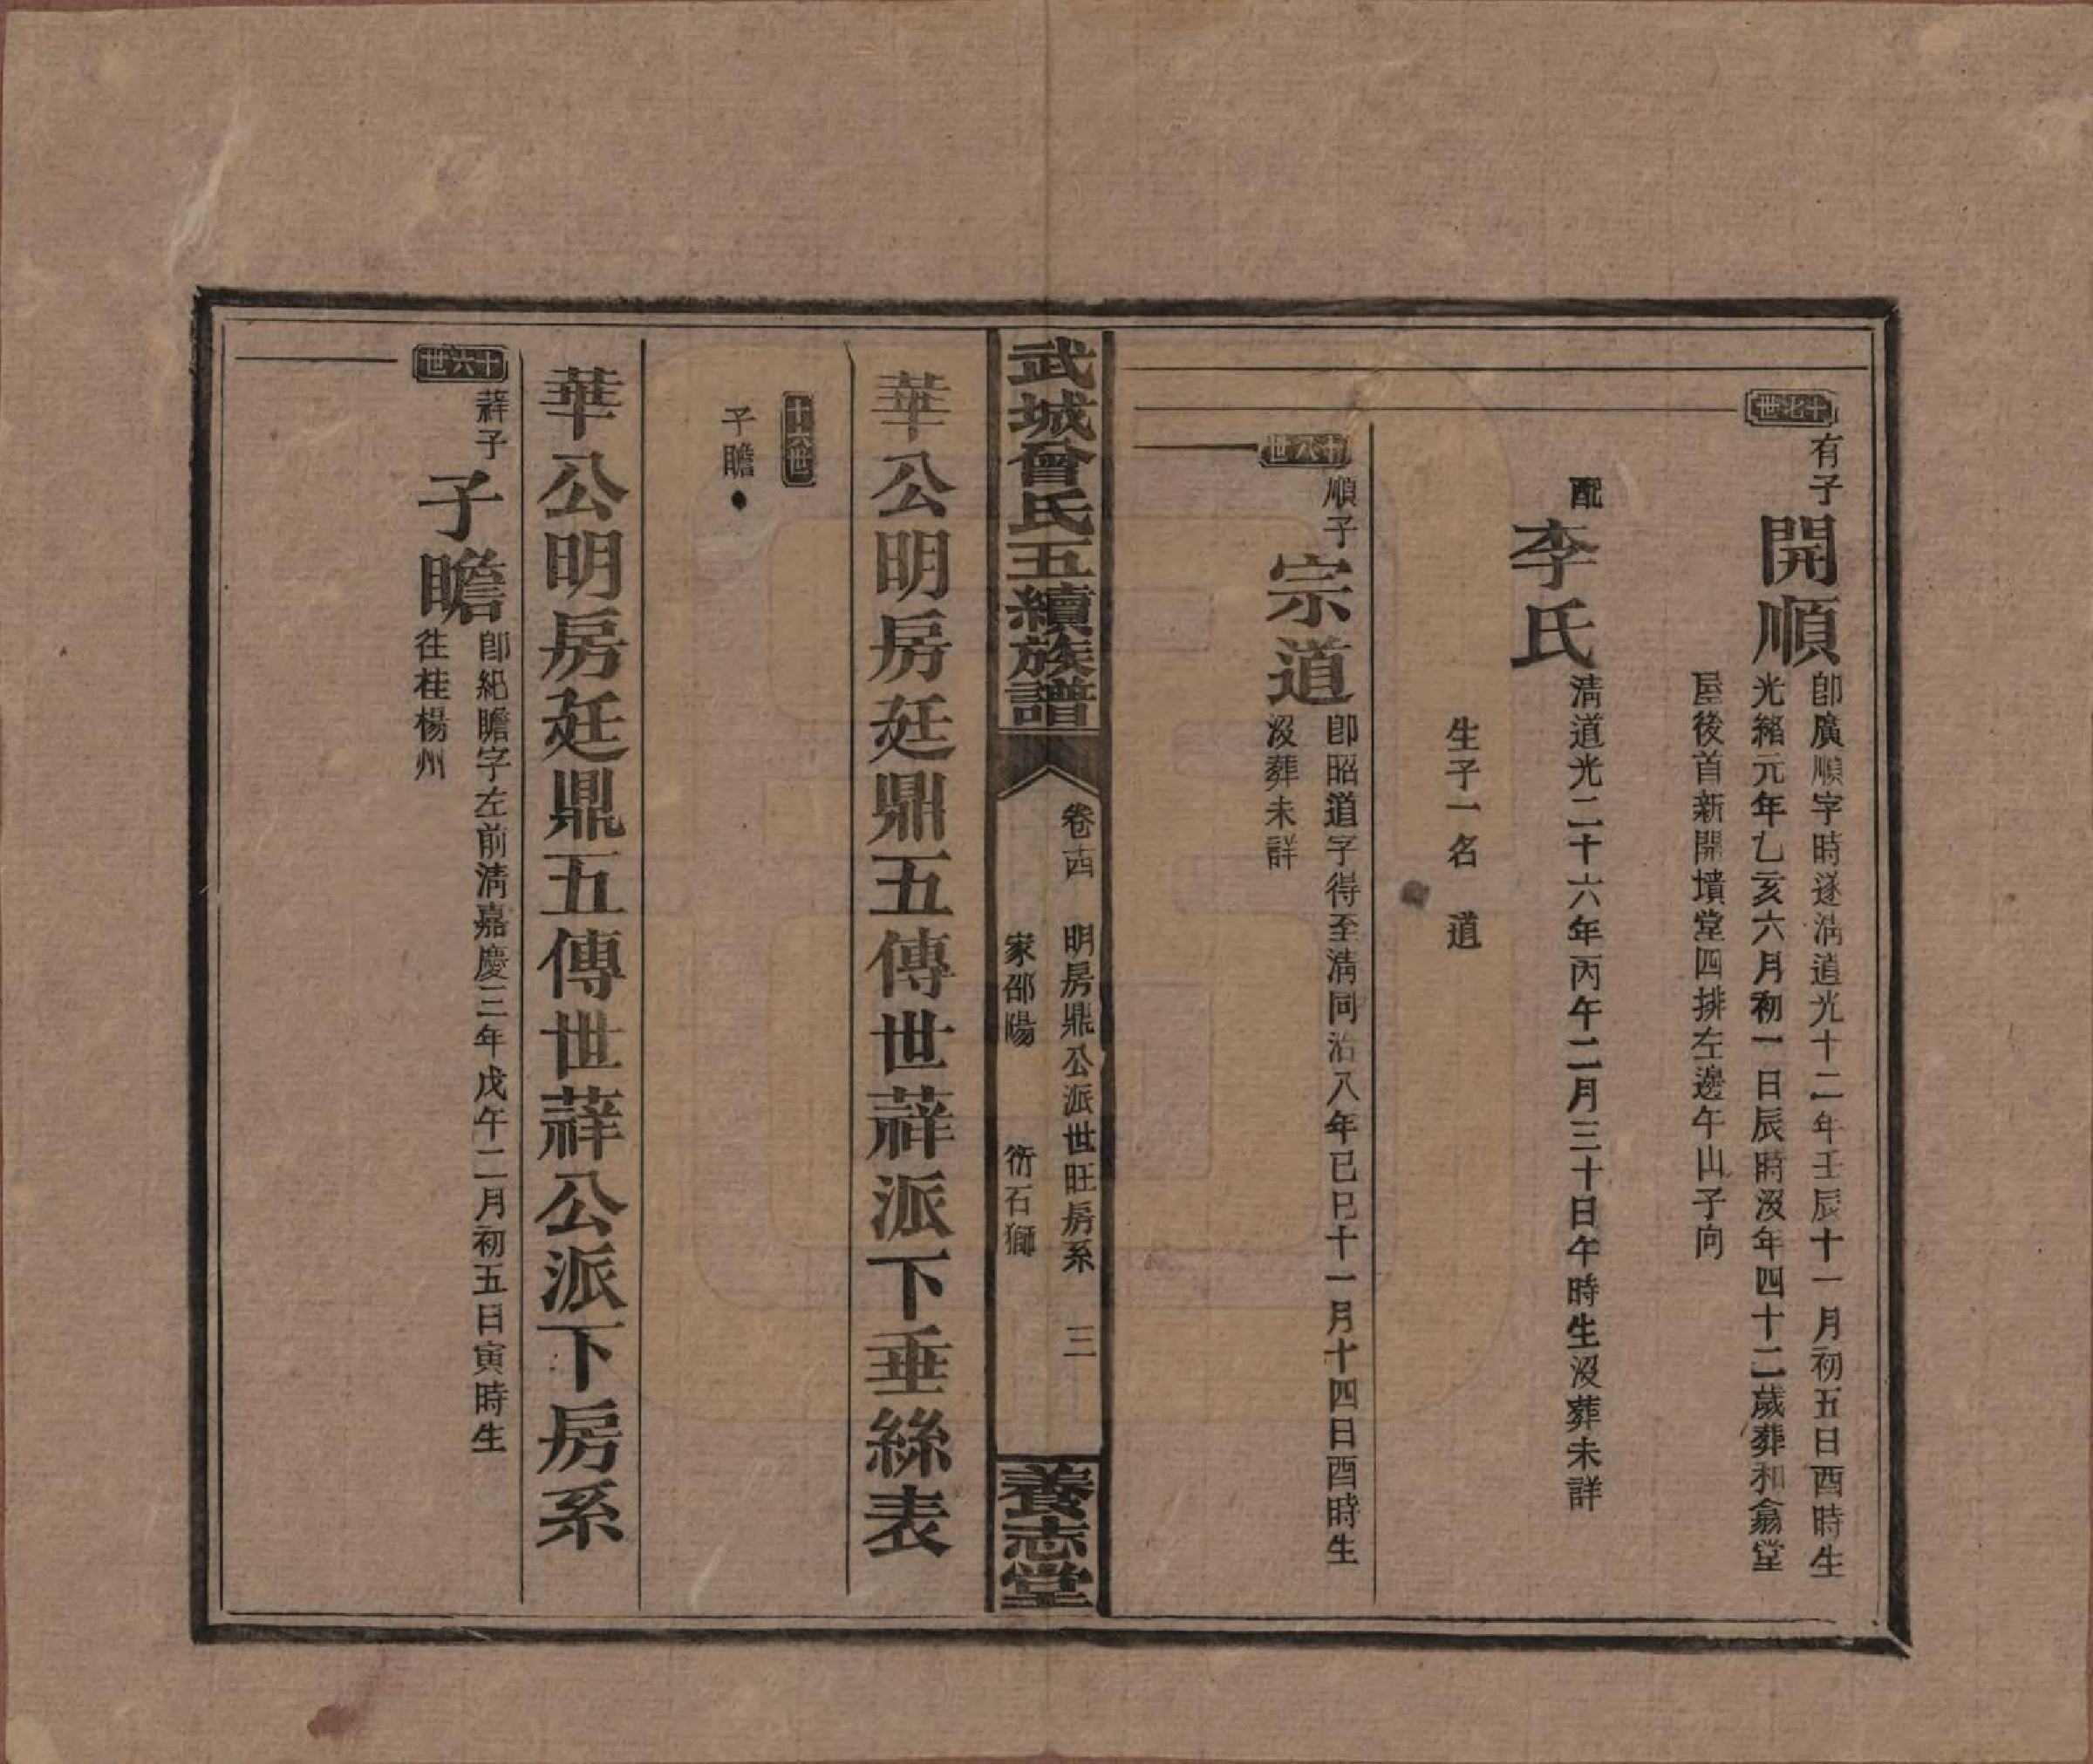 十七世
有子
開順
卽廣順字時遂清道光十二年壬辰十一月初五日酉時生
光緒元年乙亥六月初一日辰時沒年四十二歲葬和翕堂
屋後首新開墳堂四排左邊午山子向
配
李氏
清道光二十六年丙午二月三十日午時生沒葬未詳
生子一名 道
十八世
順子
宗道
卽昭道字得至清同治八年己巳十一月十四日酉時生
沒葬未詳
武城曾氏五續族譜
卷十四 明房鼎公派世旺房系 三
家邵陽 衖石獅
養志堂
華公明房廷鼎五傳世䔗派下垂絲表
十六世
子瞻
華公明房廷鼎五傳世䔗公派下房系
十六世
䔗子
子瞻
卽紀瞻字左前清嘉慶三年戊午二月初五日寅時生
往桂楊州